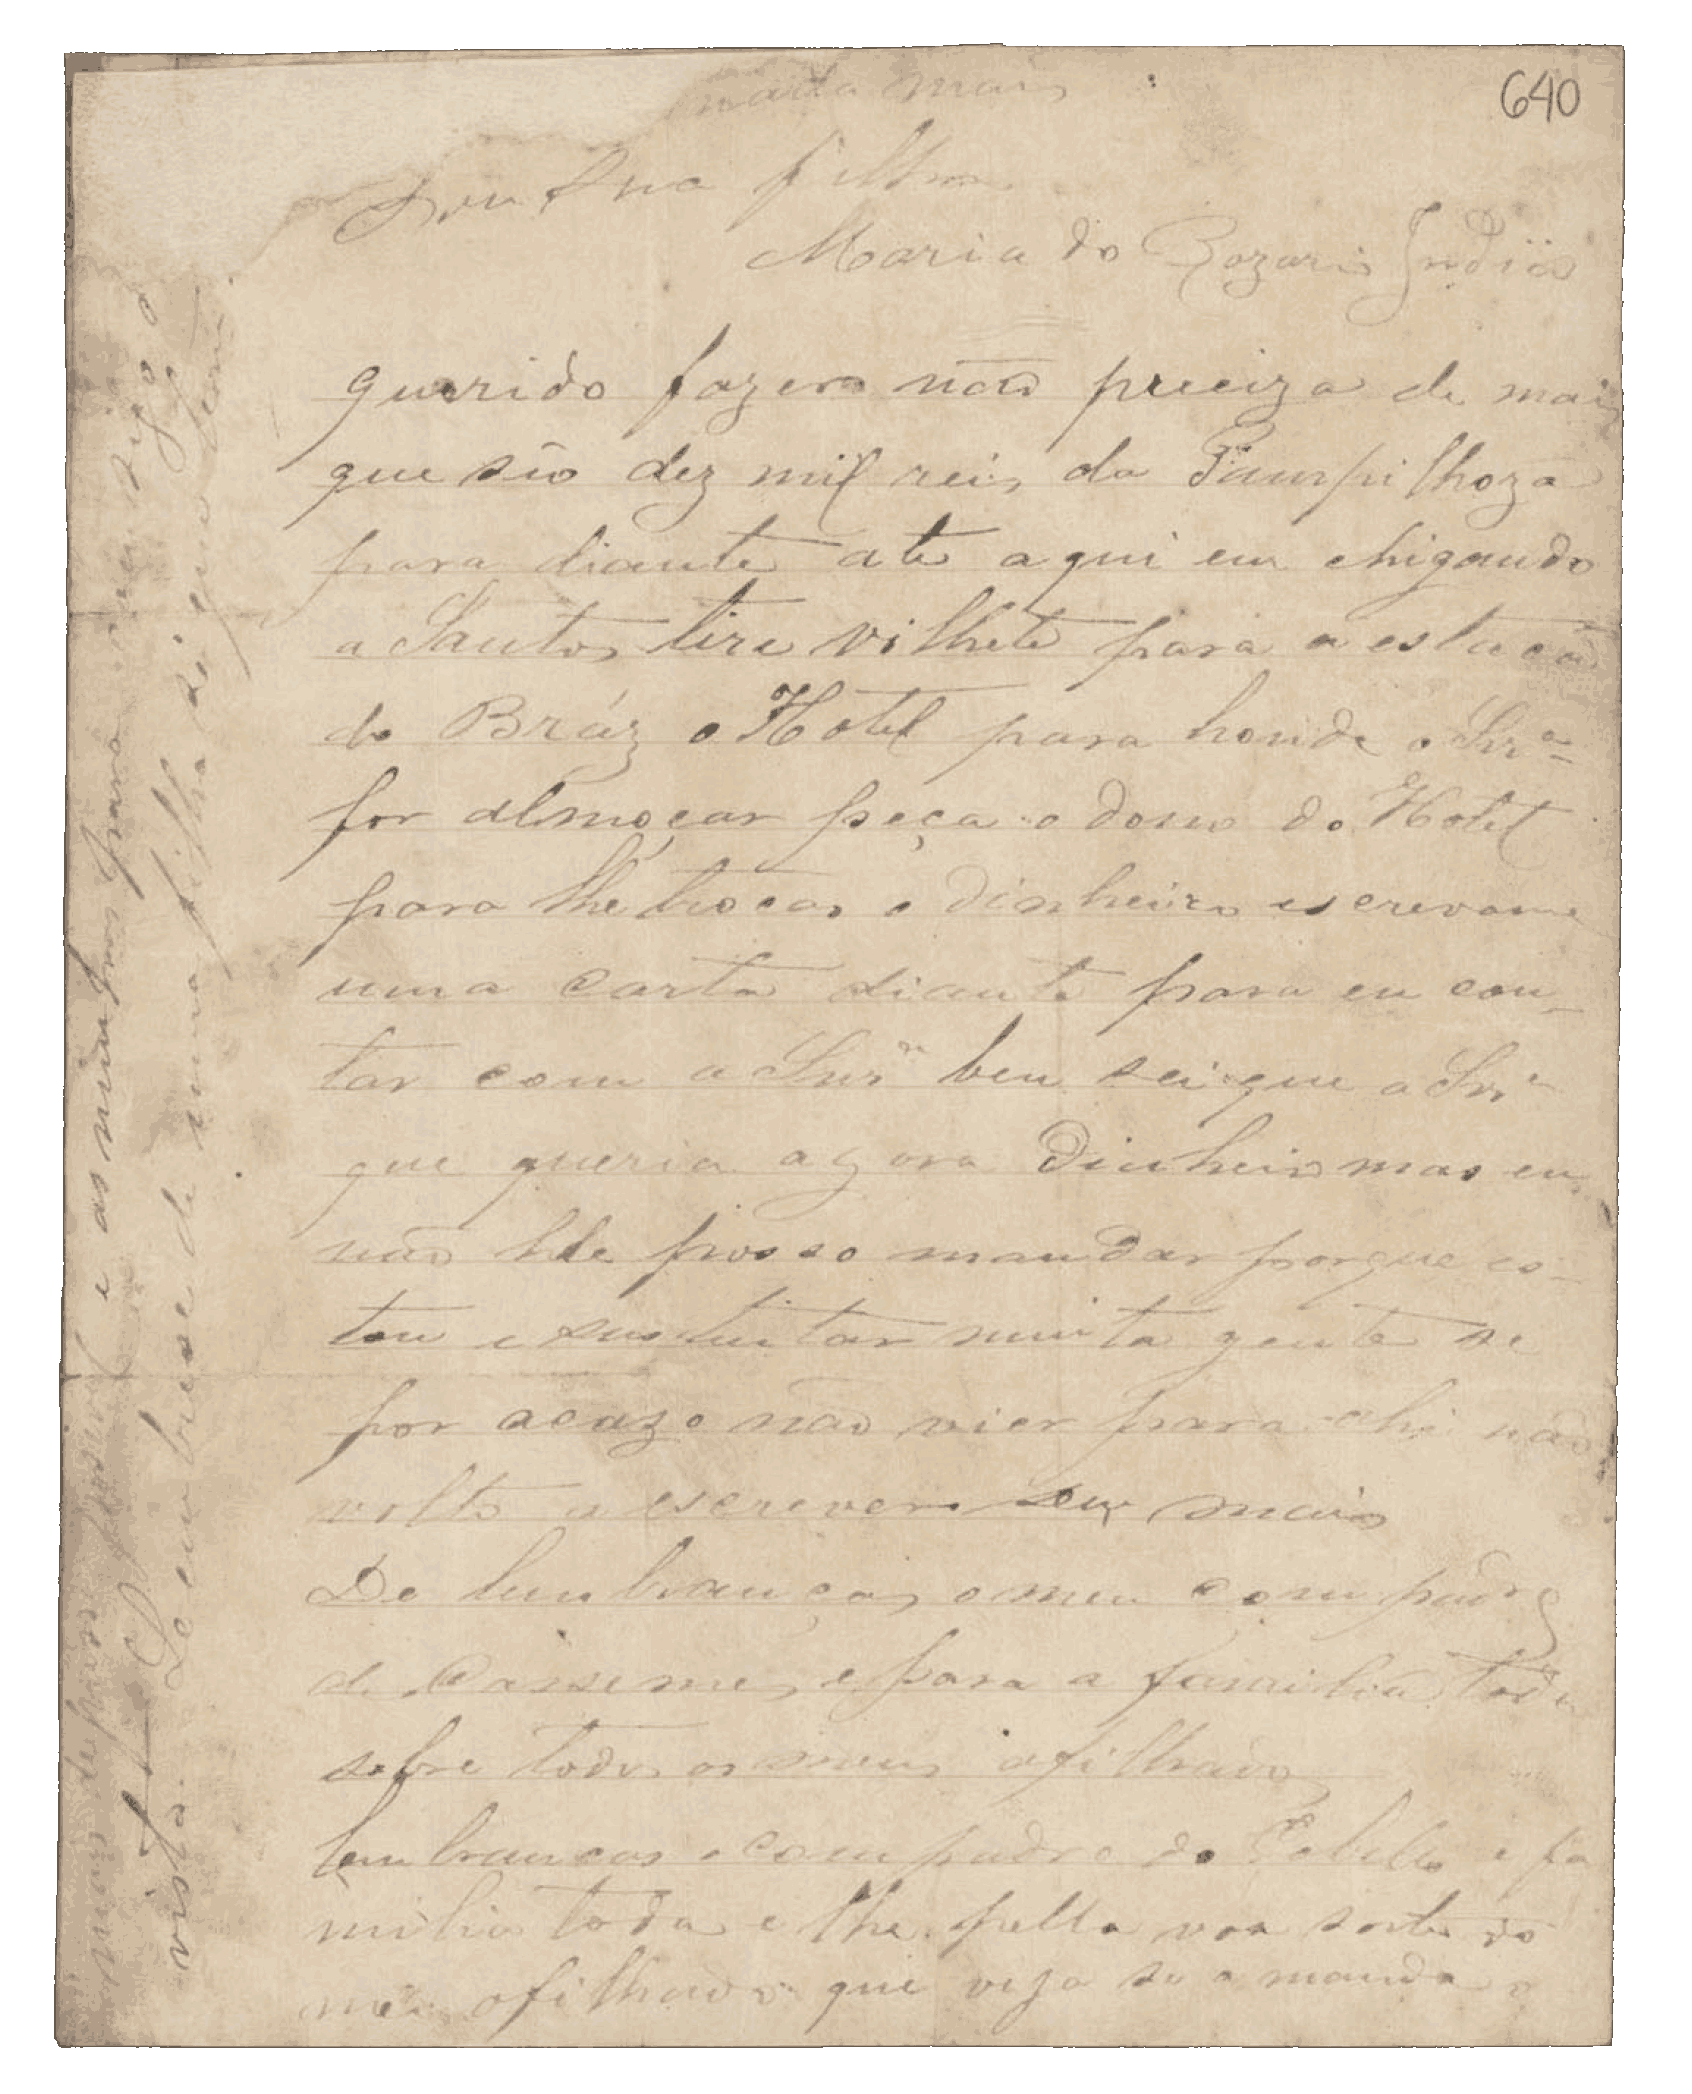 640
mais
Sou Sua filha
Maria do Rozario India
querido fazer não preciza de mais
que são dez mil reis da Pampilhoza
para diante ate aqui em chigando
a Santos tire vilhete para a estação
do Bráz o Hotel para honde a Snrª
for almoçar peça o dono do Hotel
para lhe trocar o dinheiro escrevame
uma carta diante para eu con-
tar com a Snrª bem sei que a Snrª
que queria agora dinheiro mas eu
não lhe posso mandar porque es-
tou a sustentar muita gente se
por acazo não vier para ahi não
volto a escrever mais
De lembranças o meu compadre
de e para a familia toda
sobre todos os meus afilhados
lembrancas o compadre do e fa
milia toda e lhe pella voa sorte do
meu afilhado que veja se o manda
e as minhas para
vista. Lembrese de uma filha que tem.